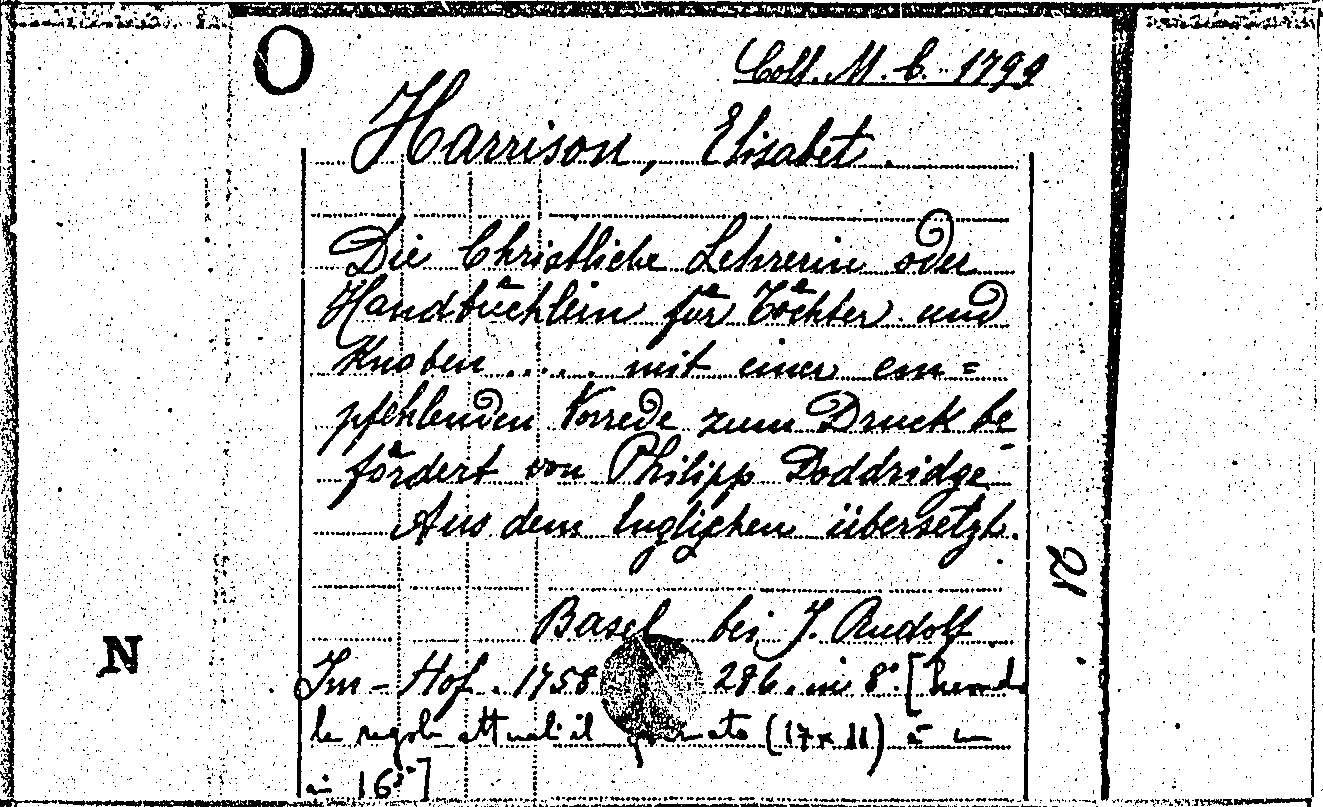 O
Coll. M. C. 1799
Harrison, Elisabet.
Die Christliche Lehrerin oder
Handbüchlein für Töchter und
Knaben..... mit einer em=
pfehlenden Vorrede zum Druck be
fördert von Philipp Doddridge
Aus dem Englischen übersetzt.
21
Basel bei J. Rudolf
N
Im-Hof. 1758 286. in 8° [
le regole attuali il (17x11) è
in 16°]